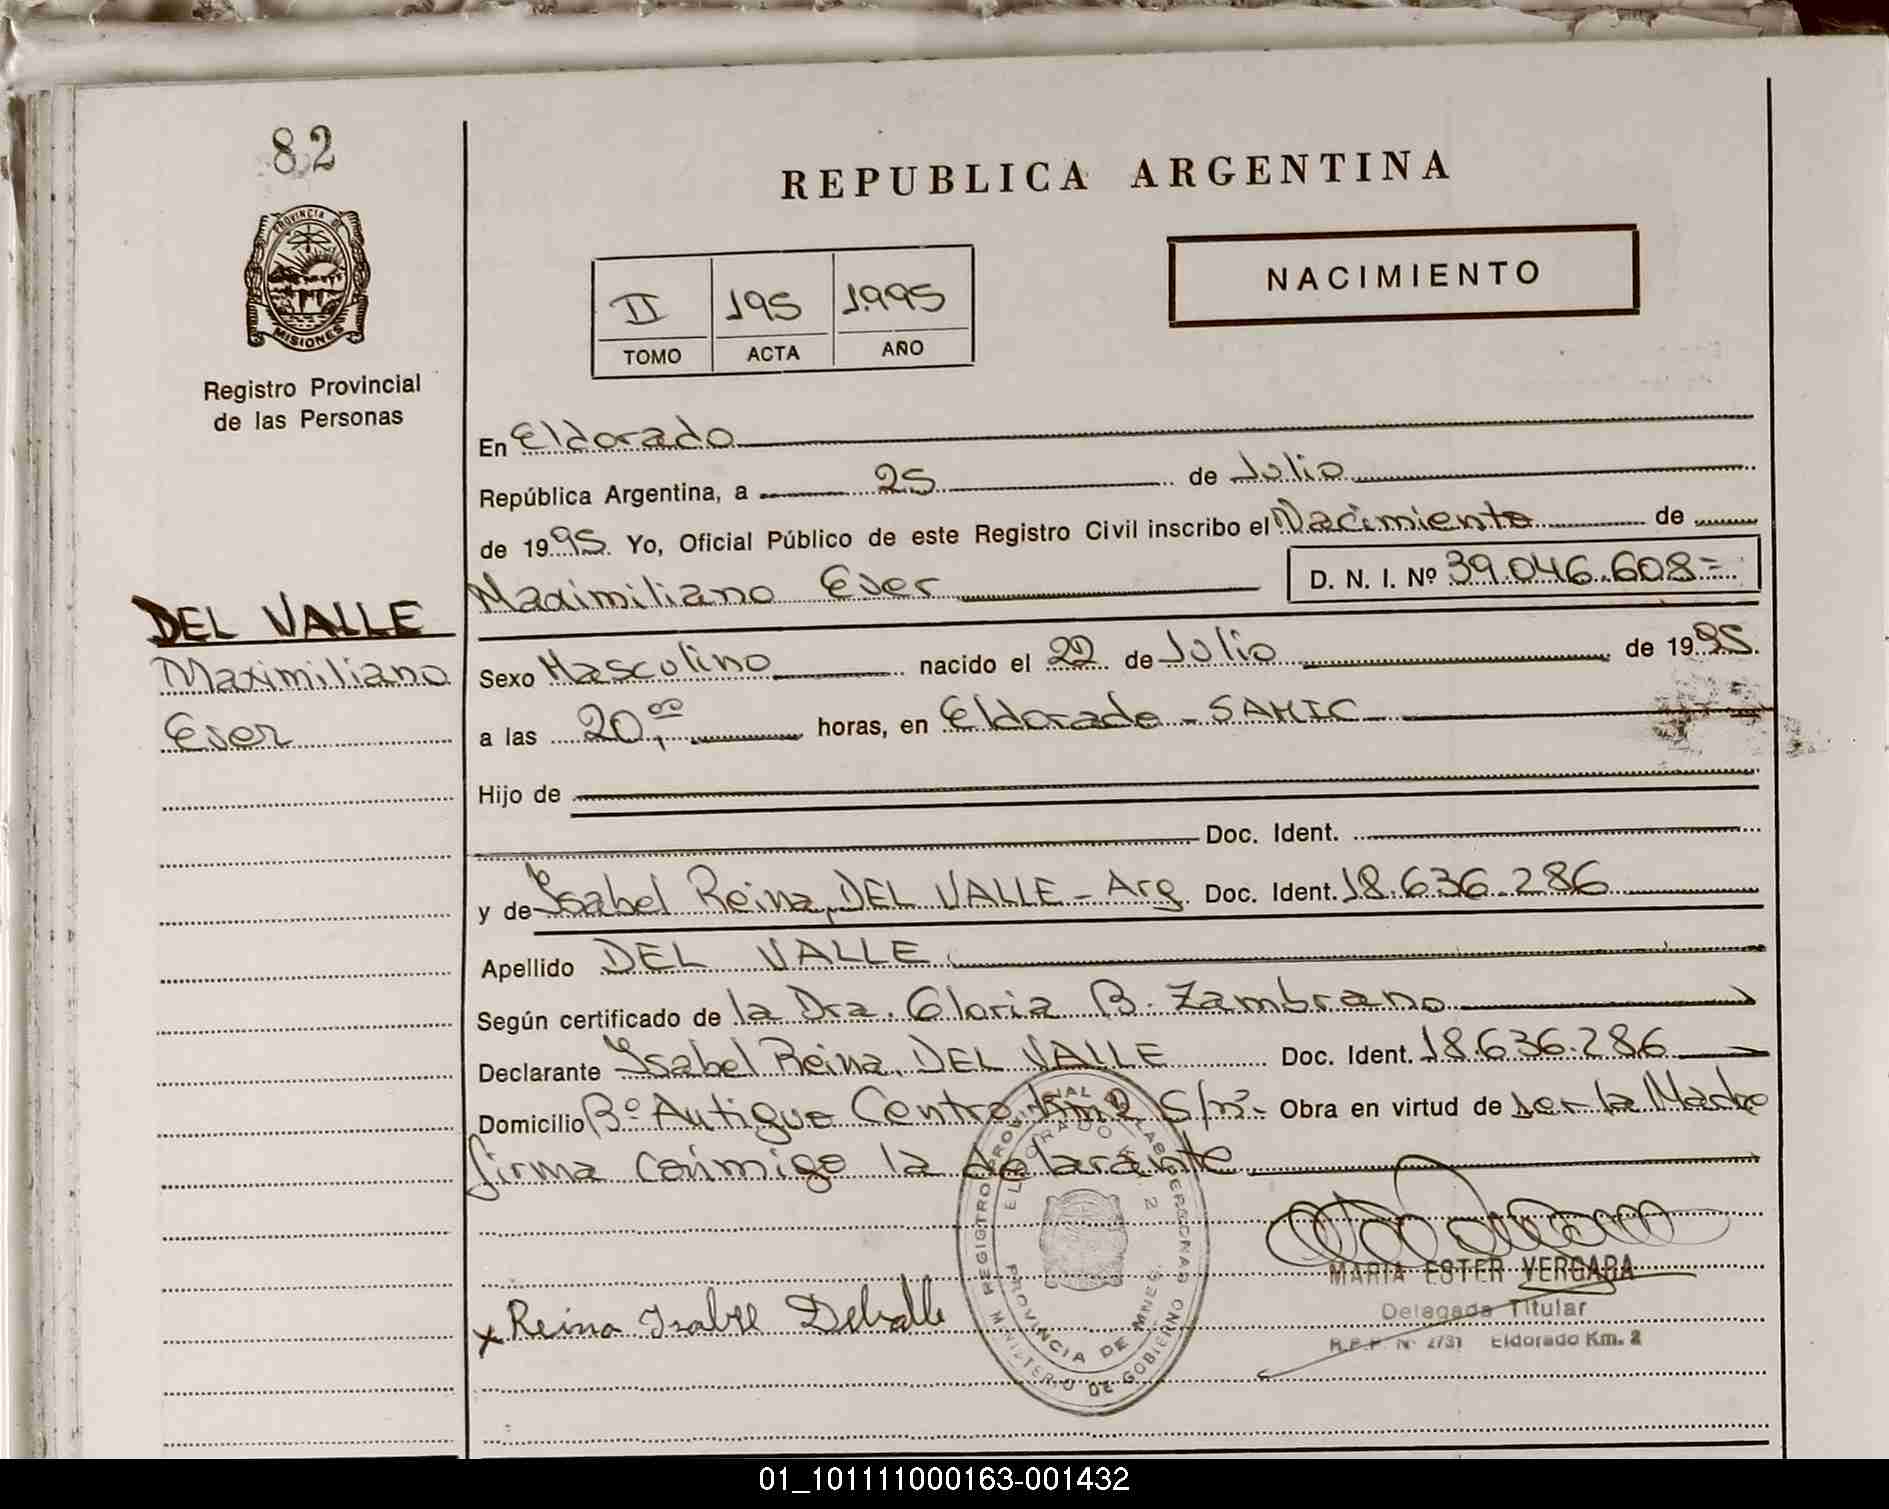 82
PROVINCIA DE
MISIONES
Registro Provincial
de las Personas
DEL VALLE
Maximiliano
Eser
REPUBLICA ARGENTINA
NACIMIENTO
II 195 1.995
TOMO ACTA AÑO
En Eldorado
República Argentina, a 25 de Julio
de 1995. Yo, Oficial Público de este Registro Civil inscribo el Nacimiento de
Maximiliano Eser D. N. I. Nº 39.046.608=
Sexo Masculino nacido el 22 de Julio de 1995.
a las 20,00 horas, en Eldorado - SAMIC
Hijo de
Doc. Ident.
y de Ysabel Reina, DEL VALLE - Arg. Doc. Ident. 18.636.286
Apellido DEL VALLE
Según certificado de la Dra. Gloria B. Zambrano
Declarante Ysabel Reina, DEL VALLE Doc. Ident. 18.636.286
Domicilio Bº Autigue Centro Km 2 S/nº- Obra en virtud de ser la Madre
firma conmigo la declarante
REGISTRO PROVINCIAL DE LAS PERSONAS
MINISTERIO DE GOBIERNO
ELDORADO K. 2
PROVINCIA DE MNES.
x Reina Isabel Delvalle
MARIA ESTER VERGARA
Delegada Titular
R.P.P. Nº 2731 Eldorado Km. 2
01_101111000163-001432